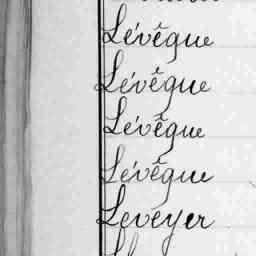 Lévêque
Lévêque
Lévêque
Lévêque
Leveyer